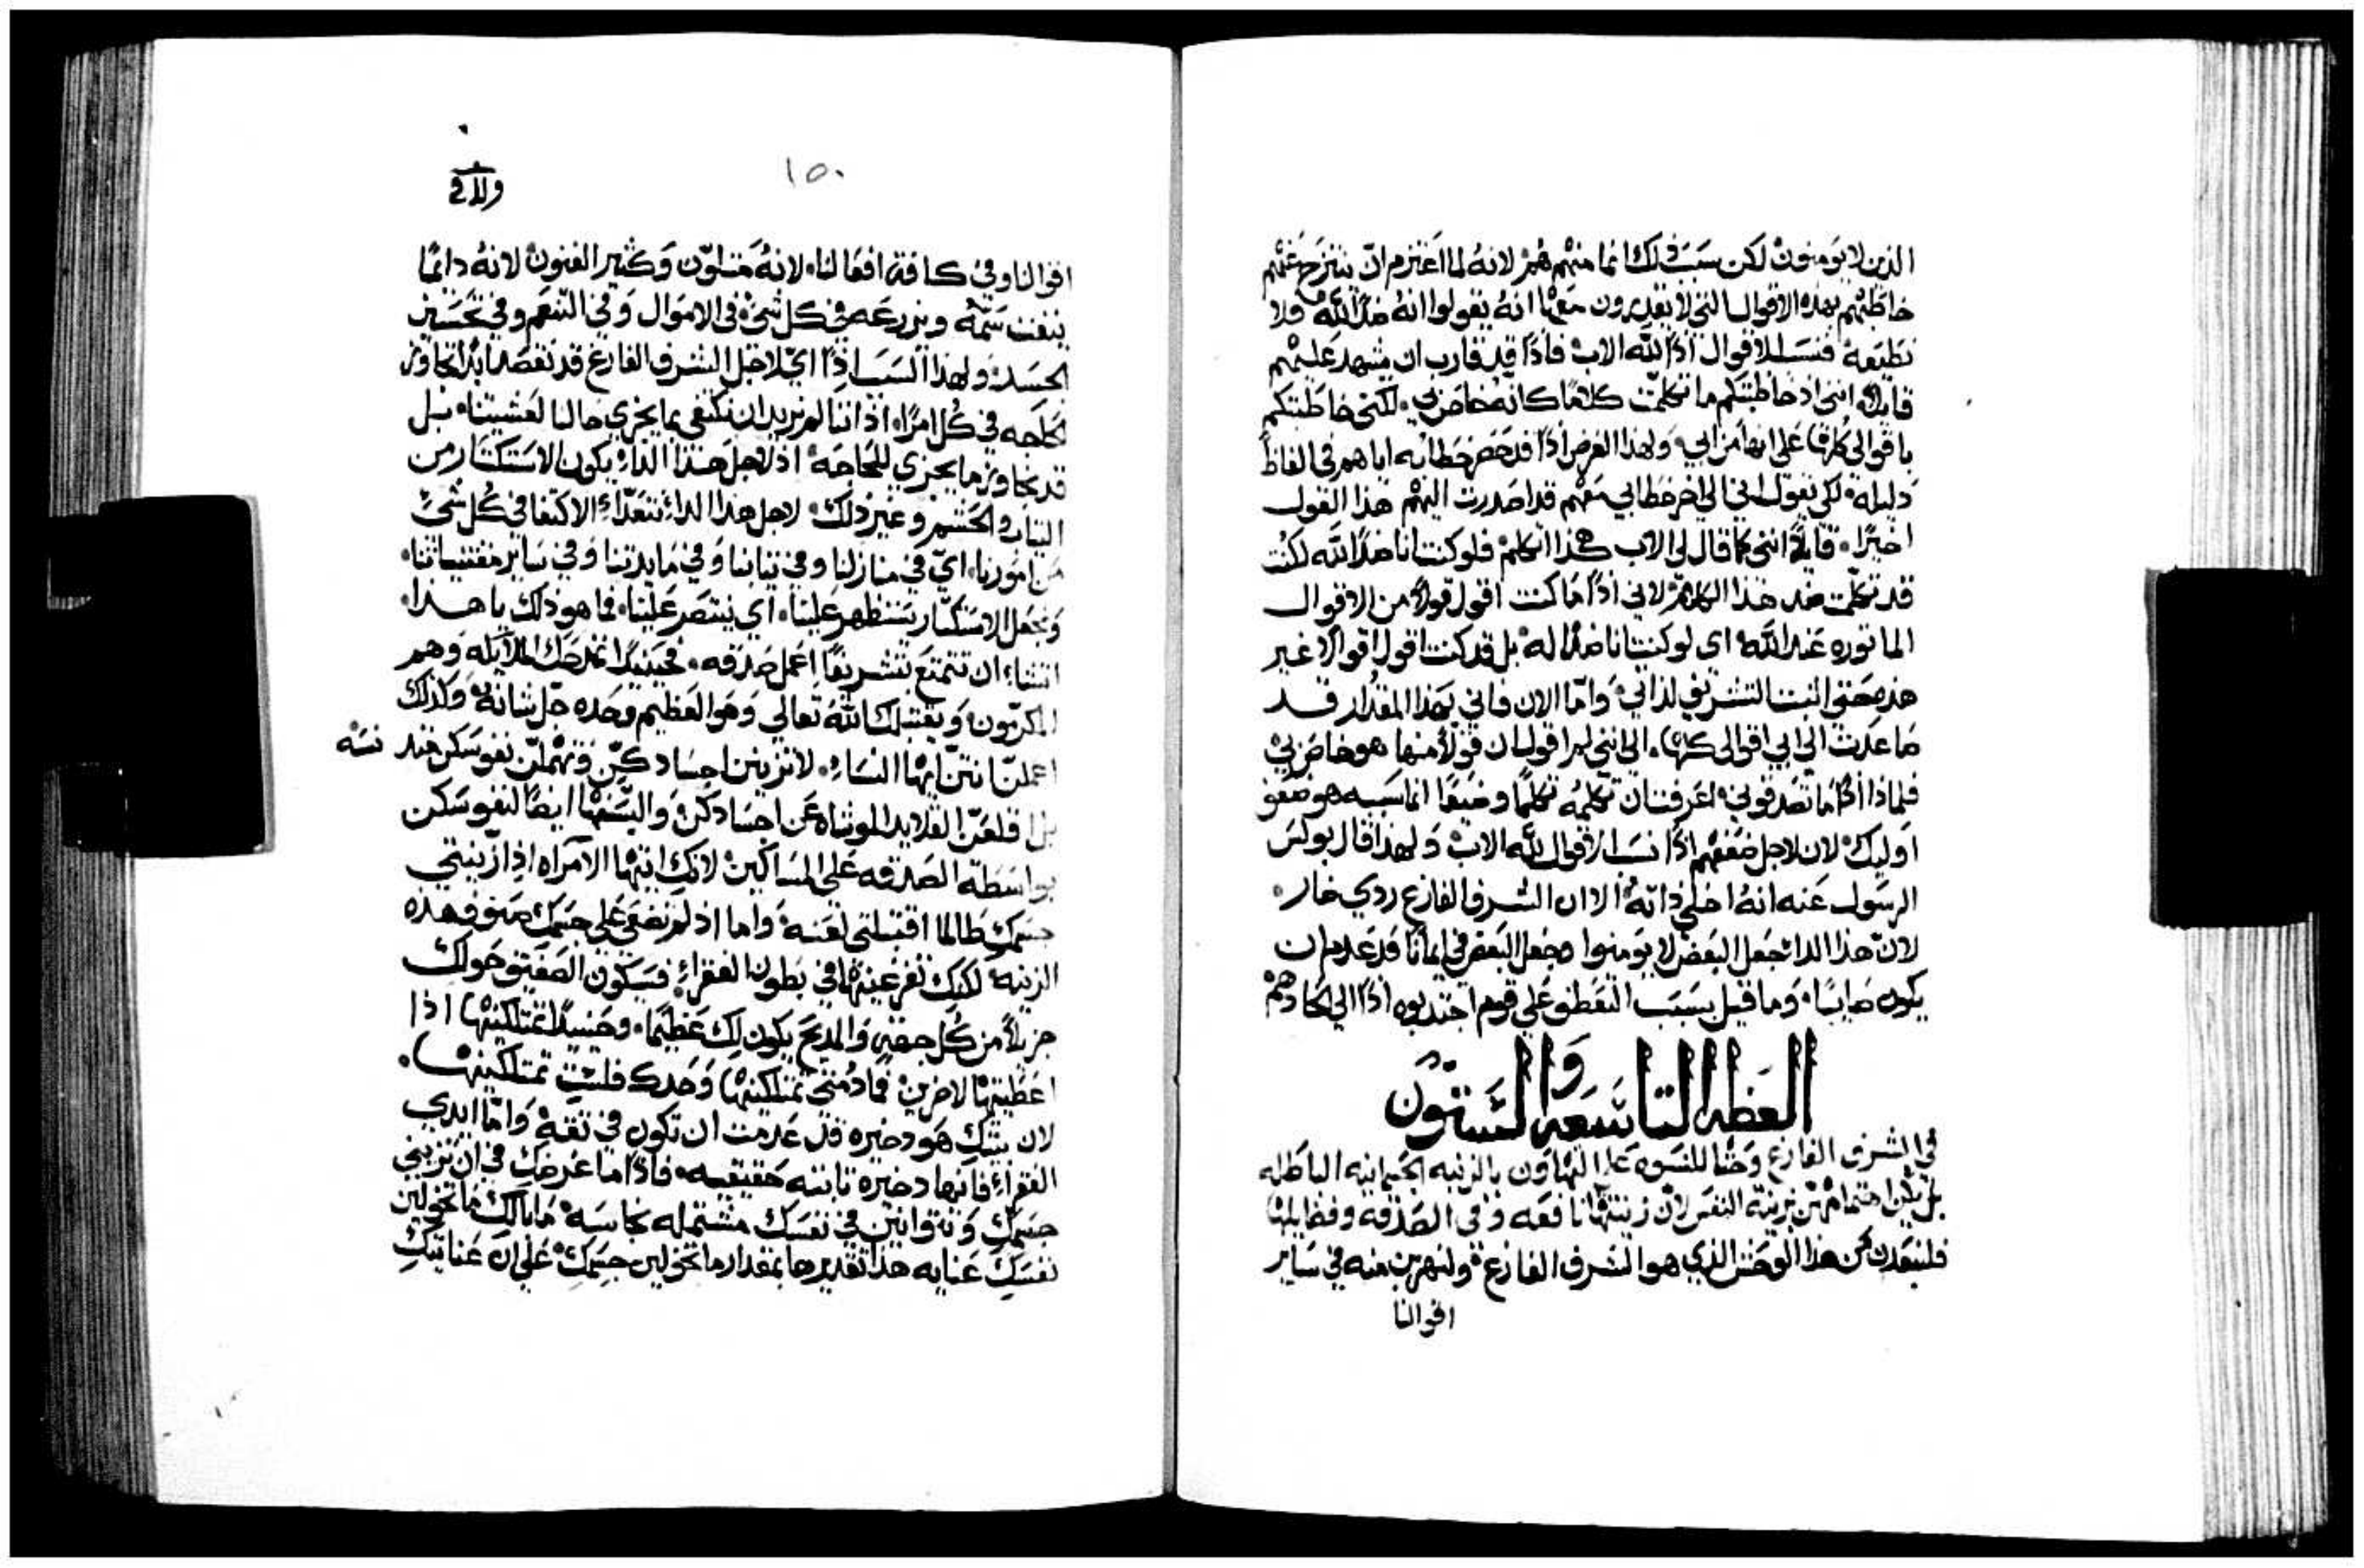 الذين لا يومنون لكن سبب ذلك انما منهم هم لانه لما اعتزم ان ينتزح عنهم
خاطبهم بهذه الاقوال التي لا يقدرون معها انه يقولوا انه ضدًا لله ولا
نطيعه فنسب الاقوال اذًا لله الاب فاذًا قد قارب ان يشهد عليهم
قايلًا انني اذ خاطبتكم ما تكلمت كلامًا كانه خاص بي لكني خاطبتكم
باقوالي كلها على انها من ابي ولهذا الغرض اذًا قد خفض خطابه اياهم في الفاظ
دليله لكي يقول اني الى اخر خطابي معهم قد اصدرت اليهم هذا القول
اخيرًا قايلًا انني كما قال لي الاب هكذا اتكلم فلو كنت انا ضدًا لله لكنت
قد تكلمت ضد هذا الكلام لاني اذًا ما كنت اقول قولًا من الاقوال
الماثوره عند الله اي لو كنت انا ضدًا له بل قد كنت اقول اقوالًا غير
هذه حتى اثبت التشريف لذاتي واما الان فاني بهذا المقدار قد
ما عدت الى ابي اقوالي كلها الى انني لم اقول ان قولًا منها هو خاص بي
فلماذا اذًا ما تصدقوني اعرفت ان تكلمه تكلمًا وضيعًا انما سببه هو ضعف
اوليك لان لاجل ضعفهم اذًا نسب الاقوال لله الاب ولهذا قال بولس
الرسول عنه انه اخلى ذاته الا ان الشرف الفارغ ردي ضار
لان هذا الدا جعل البعض لا يومنوا وجعل البعض في ايماننا قد عدم ان
يكون صايبًا وما قيل بسبب التعطف على قوم اجتذبوه اذًا الى الحادهم
العظه التاسعه والستون
في الشرف الفارغ وحثًا للنسوه على التهاون بالزينه الجسمانيه الباطله
بل يكن اهتمامهن بزينة النفس لان زينتها نافعه وفي الصدقه وفضايلها
فلنبعدن من هذا الوحش الذي هو الشرف الفارغ ولنهربن منه في ساير
اقوالنا
١٥٠
اقوالنا وفي كافة افعالنا لانه متلون وكثير الفنون لانه دائمًا
ينفث سمه ويزرعه في كل شي في الاموال وفي التنعم وفي تحسين
الجسد ولهذا السبب اذًا اي لاجل الشرف الفارغ قد نقصد ابدًا تجاوز
الحاجه في كل امرًا اذ اننا لم نريد ان نكتفي بما يجزي حالنا لعشيتنا بل
قد نتجاوز ما يجزي للحاجه اذ لاجل هذا الدا يكون الاستكثار من
الثياب والحشم وغير ذلك لاجل هذا الداء نتعدّا الاكتفا في كل شي
من امورنا اي في منازلنا وفي ثيابنا وفي مايدتنا وفي ساير مقتنياتنا
ونجعل الاستكثار يستظهر علينا اي ينتصر علينا فما هو ذلك يا هذا
اتشاء ان تتمتع بتشريفًا اعمل صدقه فحينيذًا تمدحك الملايكه وهم
المكرمون ويقتبلك الله تعالى وهو العظيم وحده جل شانه وكذلك
اعملن انتن ايها النساء لا تزينن اجسادكن وتهملن نفوسكن
بل قلعن القلايد الموشاه عن اجسادكن والبسنها ايضًا لنفوسكن
بواسطة الصدقه على المساكين لانك ايتها الامراه اذا زينتي
جسمك طالما اقتبلتي لعنه واما اذ لم تضعي على جسمك صنوف هذه
الزينه لكنك تفرغينها في بطون الفقراء فسيكون التصفيق حولك
جزيلًا من كل جهة والمديح يكون لك عظيمًا وحينيذًا تمتلكينها اذا
اعطيتها لاخرين فما دمتي تمتلكينها وحدك فلست تمتلكينها
لان بيتك هو دخيره قد عدمت ان تكون في ثقه واما ايدي
الفقراء فانها دخيره ثابته حقيقيه فاذًا ما غرضك في ان تزيني
جسمك وتتوانين في نفسك مشتمله نجاسه ما بالك ما تخولين
نفسك عنايه هذا تقديرها بمقدار ما تخولين جسمك على ان عنايتك